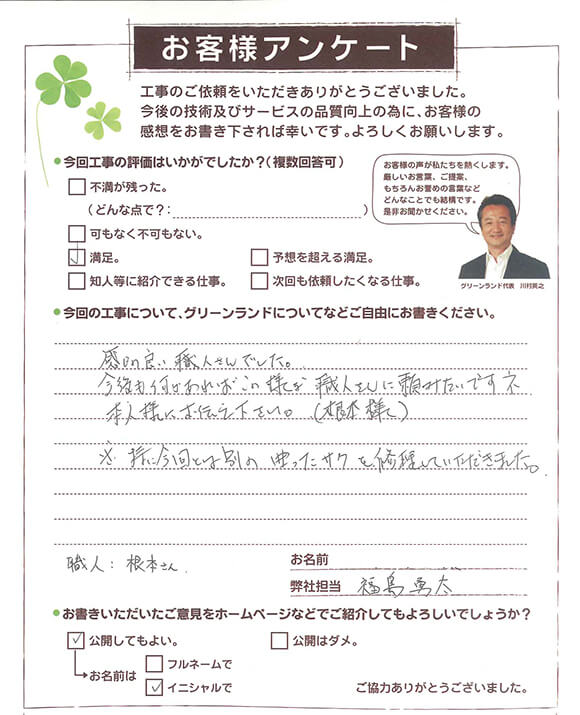 お客様アンケート
工事のご依頼をいただきありがとうございました。
今後の技術及びサービスの品質向上の為に、お客様の
感想をお書き下されば幸いです。よろしくお願いします。
●今回工事の評価はいかがでしたか?(複数回答可)
不満が残った。
(どんな点で?: )
可もなく不可もない。
満足。
予想を超える満足。
知人等に紹介できる仕事。
次回も依頼したくなる仕事。
お客様の声が私たちを熱くします。
厳しいお言葉、ご提案、
もちろんお誉めの言葉など
どんなことでも結構です。
是非お聞かせください。
グリーンランド代表 川村英之
●今回の工事について、グリーンランドについてなどご自由にお書きください。
感じの良い職人さんでした。
今後も何かあればこの様な職人さんに頼みたいですネ
本人様にお伝え下さい。(根本様に)
※特に今回とは別の曲ったサクを修理していただきました。
職人:根本さん
お名前
弊社担当 福島勇太
●お書きいただいたご意見をホームページなどでご紹介してもよろしいでしょうか?
公開してもよい。
公開はダメ。
お名前は
フルネームで
イニシャルで
ご協力ありがとうございました。